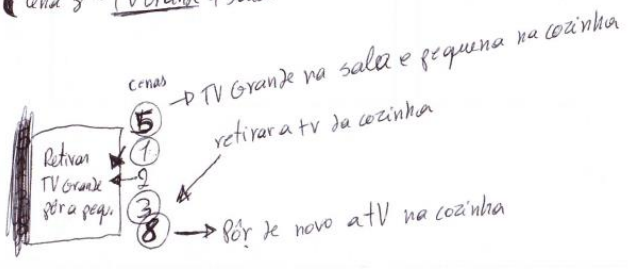 Cena 8 - TV Grande
Cenas
5 → TV Grande na sala e pequena na cozinha
1 retirar a tv da cozinha
Retirar
TV Grande 2
pôr a pequ. 3
8 → Pôr de novo a tV na cozinha